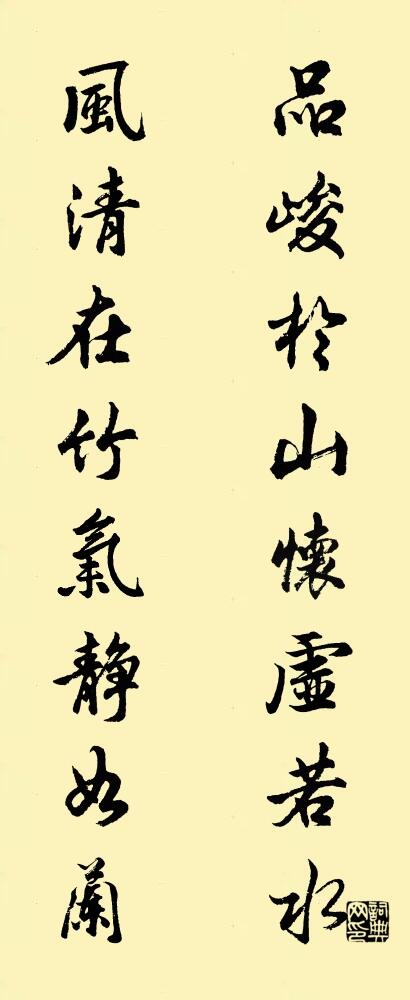 品峻於山懷虛若水
風清在竹氣靜如蘭
詞典網印